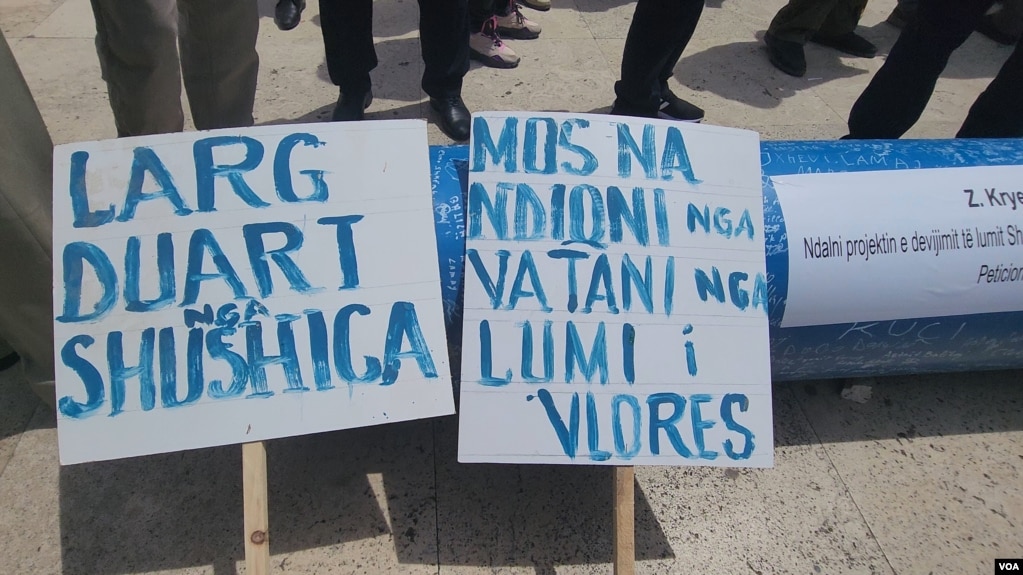 LARG
DUART
NGA
SHUSHICA
MOS NA
NDIQNI NGA
VATANI NGA
LUMI i
VLORES
Z. Krye
Ndalni projektin e devijimit të lumit Sh
Peticion
KUÇI
VOA